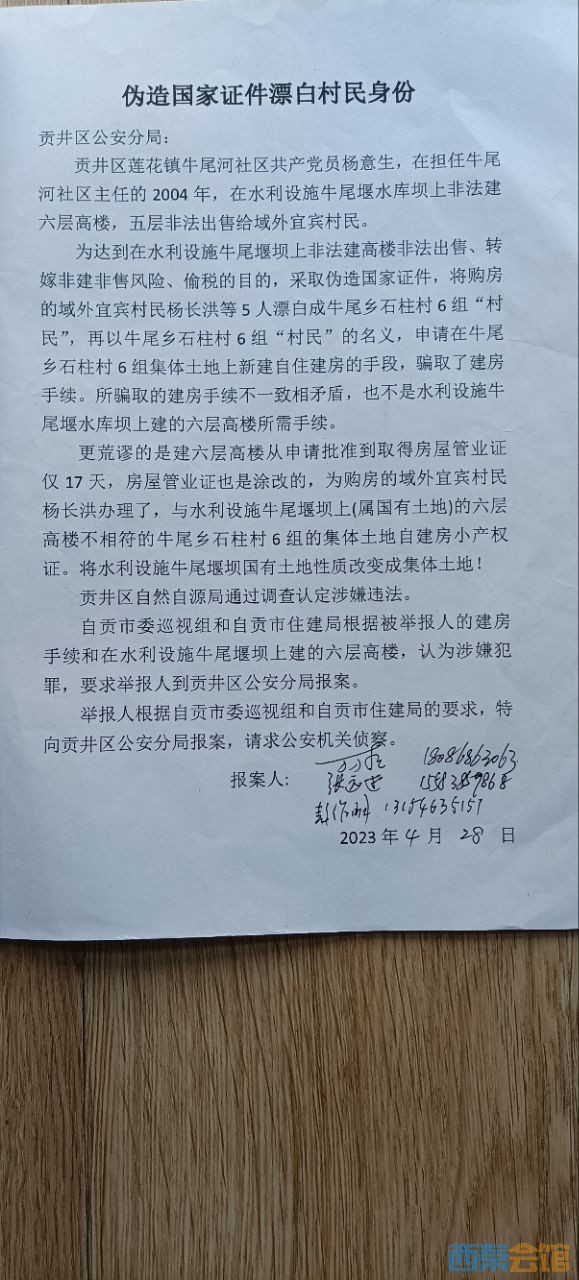 伪造国家证件漂白村民身份
贡井区公安分局：
贡井区莲花镇牛尾河社区共产党员杨意生，在担任牛尾
河社区主任的 2004 年，在水利设施牛尾堰水库坝上非法建
六层高楼，五层非法出售给域外宜宾村民。
为达到在水利设施牛尾堰坝上非法建高楼非法出售、转
嫁非建非售风险、偷税的目的，采取伪造国家证件，将购房
的域外宜宾村民杨长洪等 5 人漂白成牛尾乡石柱村 6 组“村
民”，再以牛尾乡石柱村 6 组“村民”的名义，申请在牛尾
乡石柱村 6 组集体土地上新建自住建房的手段，骗取了建房
手续。所骗取的建房手续不一致相矛盾，也不是水利设施牛
尾堰水库坝上建的六层高楼所需手续。
更荒谬的是建六层高楼从申请批准到取得房屋管业证
仅 17 天，房屋管业证也是涂改的，为购房的域外宜宾村民
杨长洪办理了，与水利设施牛尾堰坝上(属国有土地)的六层
高楼不相符的牛尾乡石柱村 6 组的集体土地自建房小产权
证。将水利设施牛尾堰坝国有土地性质改变成集体土地！
贡井区自然自源局通过调查认定涉嫌违法。
自贡市委巡视组和自贡市住建局根据被举报人的建房
手续和在水利设施牛尾堰坝上建的六层高楼，认为涉嫌犯
罪，要求举报人到贡井区公安分局报案。
举报人根据自贡市委巡视组和自贡市住建局的要求，特
向贡井区公安分局报案，请求公安机关侦察。
18086863063
报案人：
13154635157
2023 年 4 月 28 日
西祠会馆